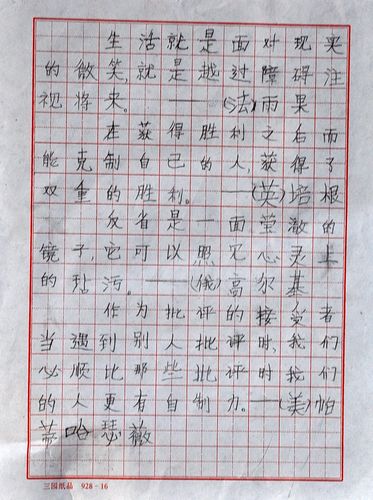 生活就是面对现实
的微笑,就是越过障碍注
视将来。——(法)雨果
在获得胜利之后而
能克制自己的人,获得了
双重的胜利。——(英)培根
反省是一面莹澈的
镜子,它可以照见心灵上
的玷污。——(俄)高尔基
作为批评的接受者
当遇到别人批评时,我们
必顺比那些批评时我们
的人更有自制力。——(美)帕
蒂哈瑟薇
三园纸品 928-16